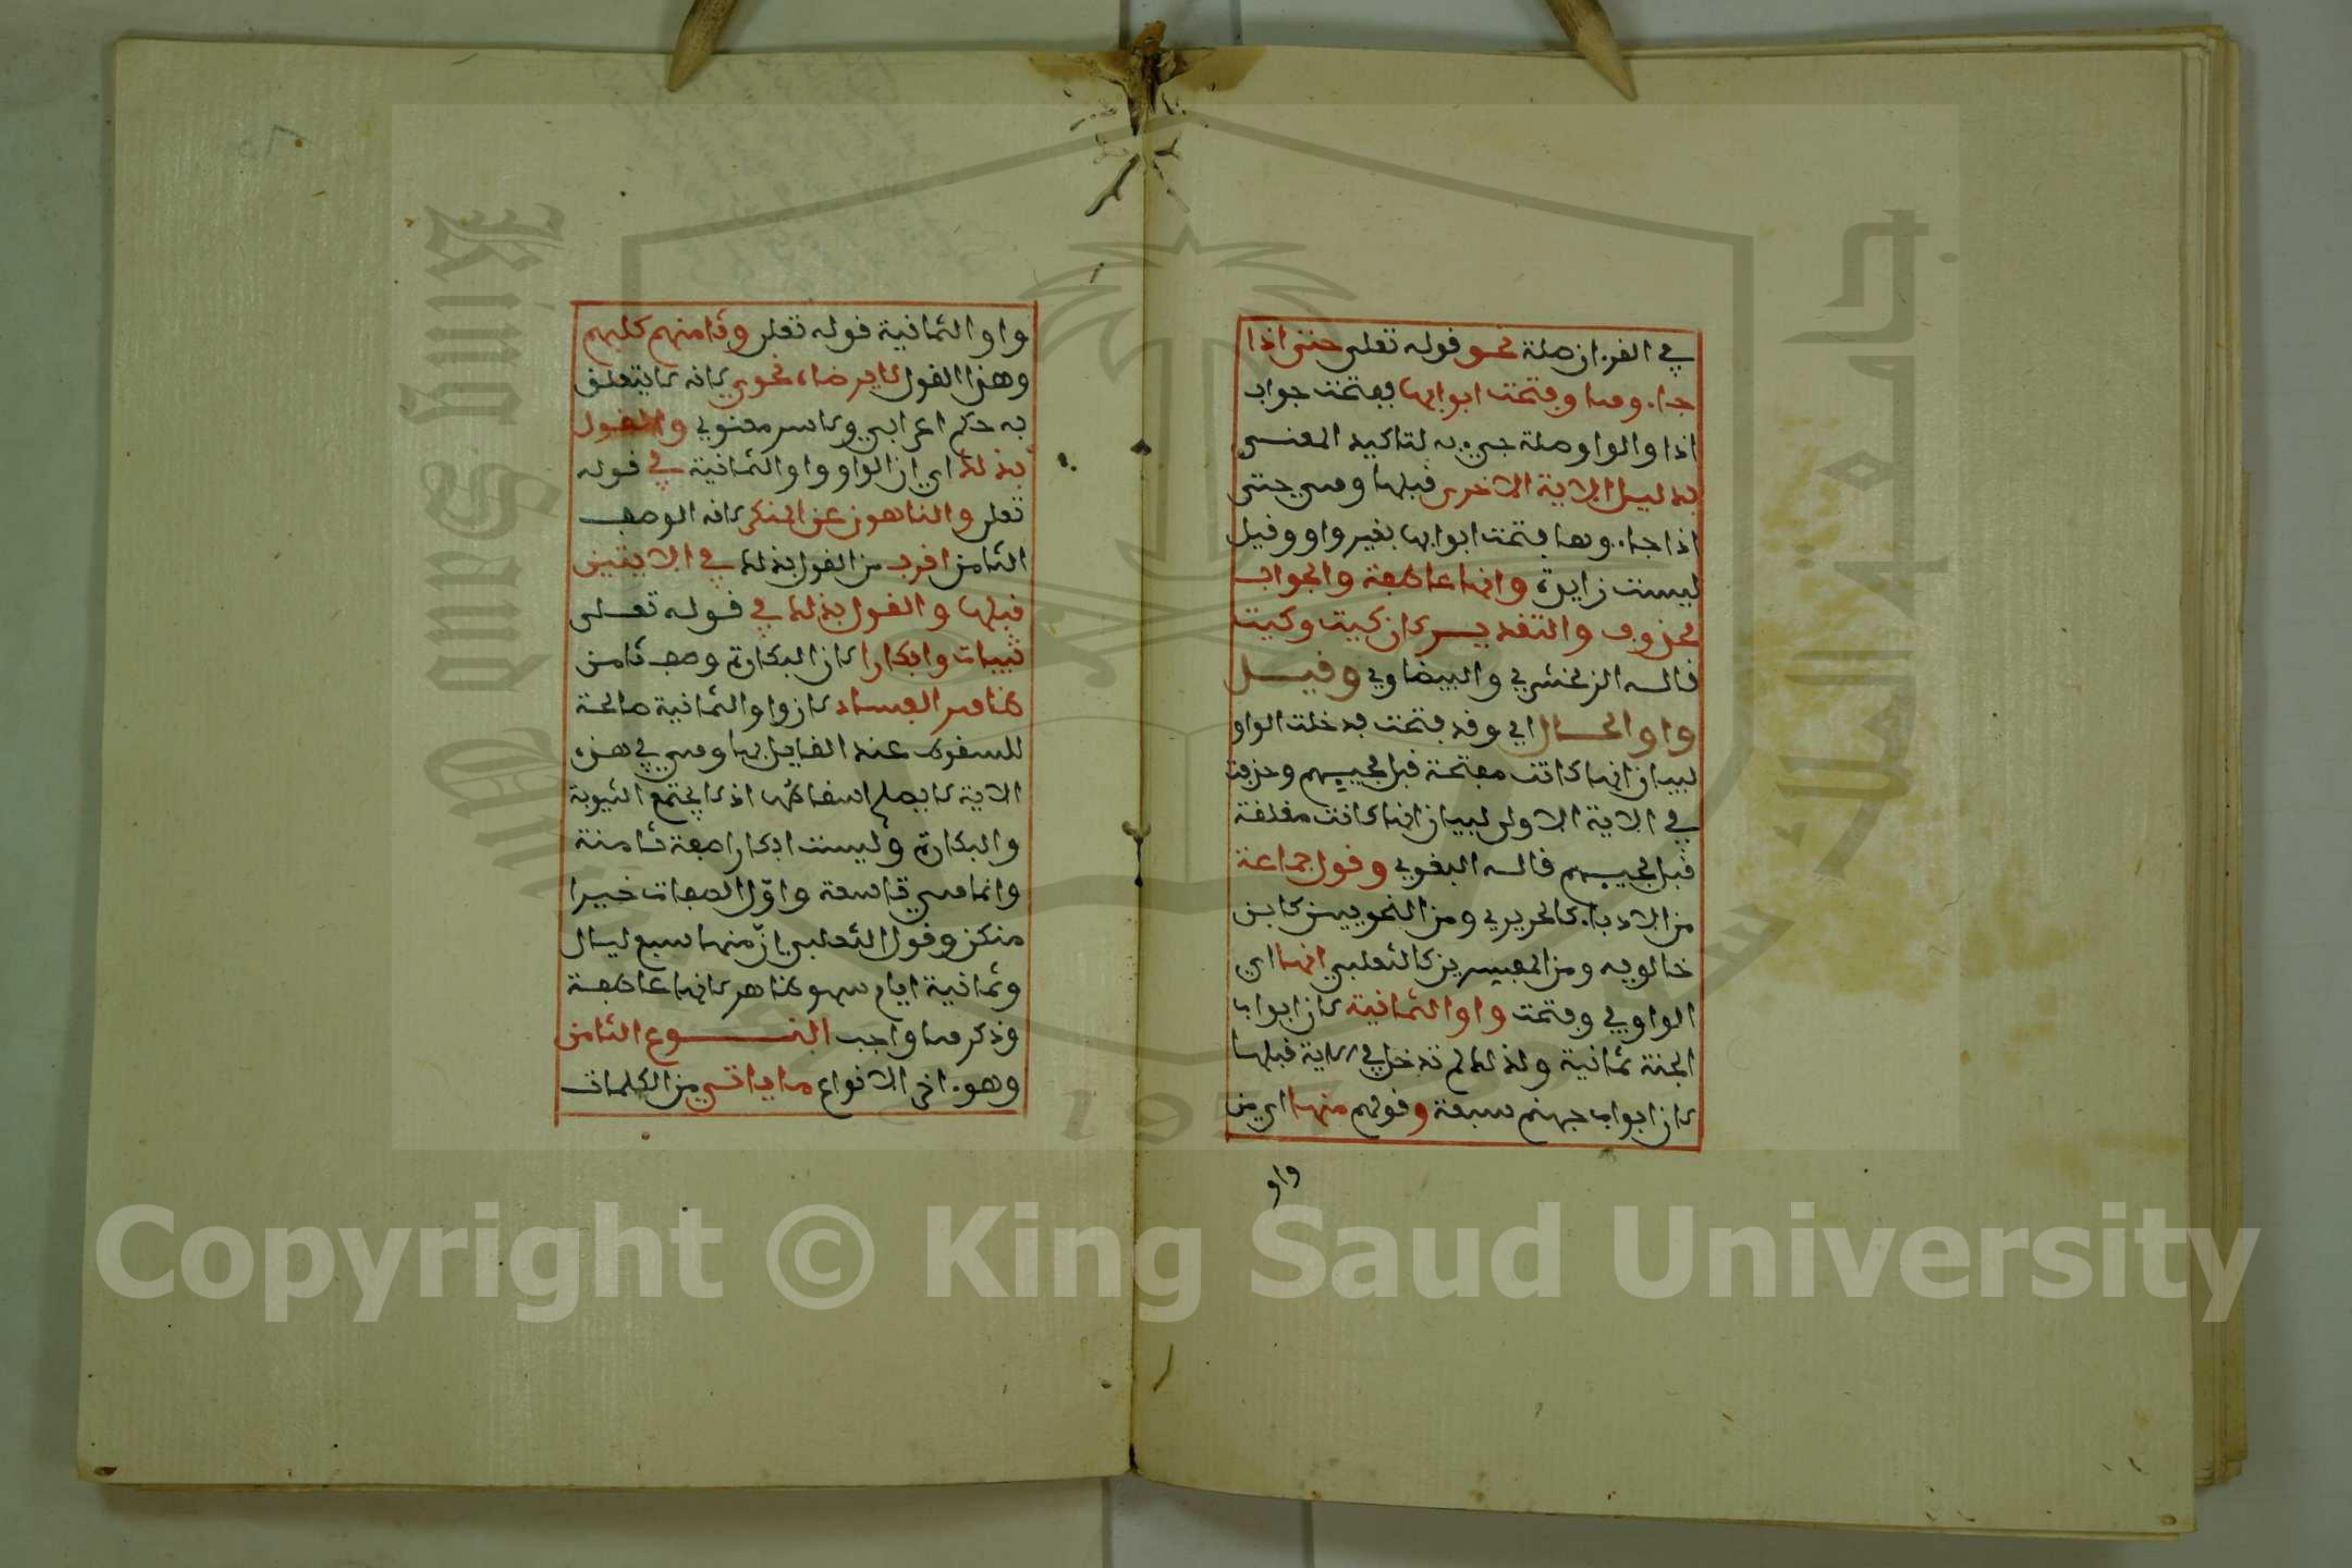 في القرءان صلة نحو قوله تعلى حتى اذا
جاءوها وفتحت ابوابها ففتحت جواب
اذا والواو صلة جيء به لتاكيد المعنى
بدليل الاية الاخرى قبلها وهي حتى
اذا جاءوها فتحت ابوابها بغير واو وقيل
ليست زايدة وانها عاطفة والجواب
محذوف والتقدير كان كيت وكيت
قاله الزمخشري والبيضاوي وقيل
واو الحال اي وقد فتحت فدخلت الواو
لبيان انها كانت مفتحة قبل مجييهم وحذفت
في الاية الاولى لبيان انها كانت مغلقة
قبل مجييهم قاله البغوي وقول جماعة
من الادباء كالحريري ومن النحويين كابن
خالويه ومن المفسرين كالثعلبي انها اي
الواو في وفتحت واو الثمانية لان ابواب
الجنة ثمانية ولذلك لم تدخل في الاية قبلها
لان ابواب جهنم سبعة وقولهم منها اي من
واو
واو الثمانية قوله تعلى وثامنهم كلبهم
وهذا القول لا يرضاه نحوي لانه لا يتعلق
به حكم اعرابي ولا سر معنوي والقول
بذلك اي ان الواو واو الثمانية في قوله
تعلى والناهون عن المنكر لانه الوصف
الثامن اقرب من القول بذلك في الايتين
قبلها والقول بذلك في قوله تعلى
ثيبات وابكارا لان البكارة وصف ثامن
ظاهر الفساد لان واو الثمانية صالحة
للسقوط عند القايل بها وهي في هذه
الاية لا يصلح اسقاطها اذ لا يجتمع الثيوبة
والبكارة وليست ابكارا صفة ثامنة
وانما هي تاسعة واوّل الصفات خيرا
منكن وقول الثعلبي ان منها سبع ليال
وثمانية ايام سهو ظاهر لانها عاطفة
وذكرها واجب النوع الثامن
وهو ءاخر الانواع ما ياتي من الكلمات
Copyright © King Saud University
King Saud University
1957